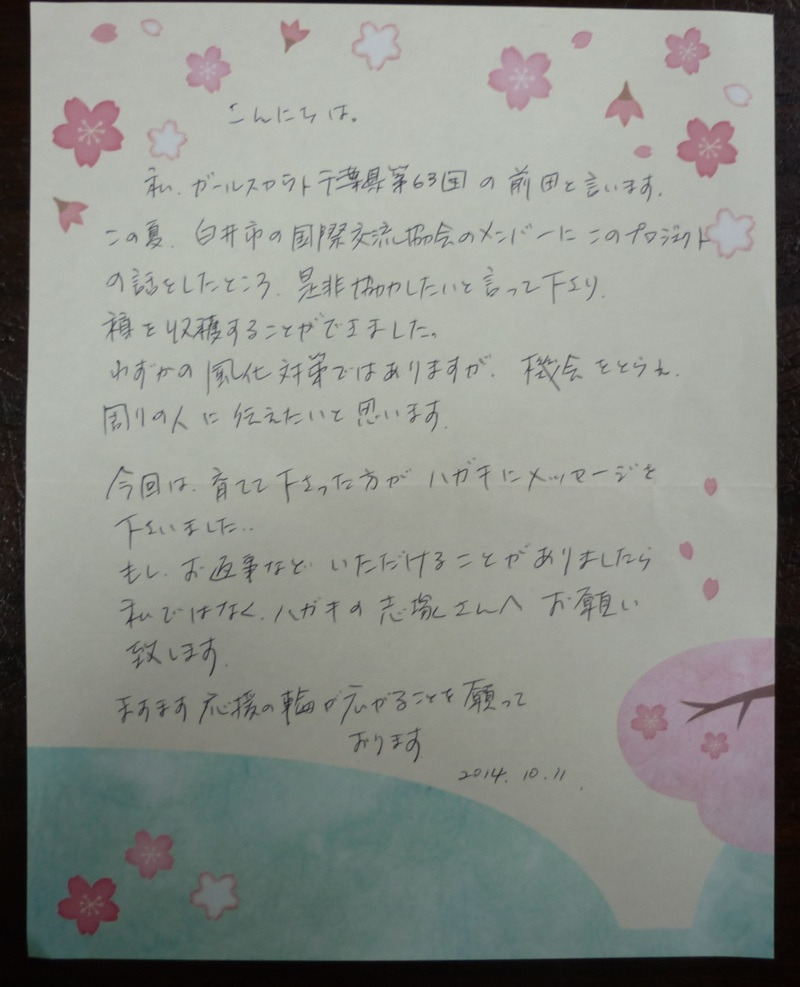 こんにちは。
私、ガールスカウト千葉県第63団の前田と言います。
この夏、白井市の国際交流協会のメンバーにこのプロジェクト
の話をしたところ、是非協力したいと言って下さり、
種を収穫することができました。
わずかの風化対策ではありますが、機会をとらえ、
周りの人に伝えたいと思います。
今回は、育てて下さった方がハガキにメッセージを
下さいました..
もし、お返事など いただけることがありましたら
私ではなく、ハガキの志塚さんへ お願い
致します。
ますます応援の輪が広がることを願って
おります
2014.10.11.